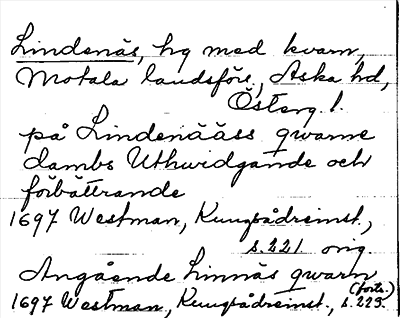 Lindenäs, hg med kvarn,
Motala landsförs., Aska hd,
Österg. l.
på Lindenääss qwarne
dambs Uthwidgande och
förbättrande
1697 Westman, Kungsådreinst.,
s. 221 orig.
Angående Linnäs qwarn
(forts.)
1697 Westman, Kungsådreinst., s. 223.